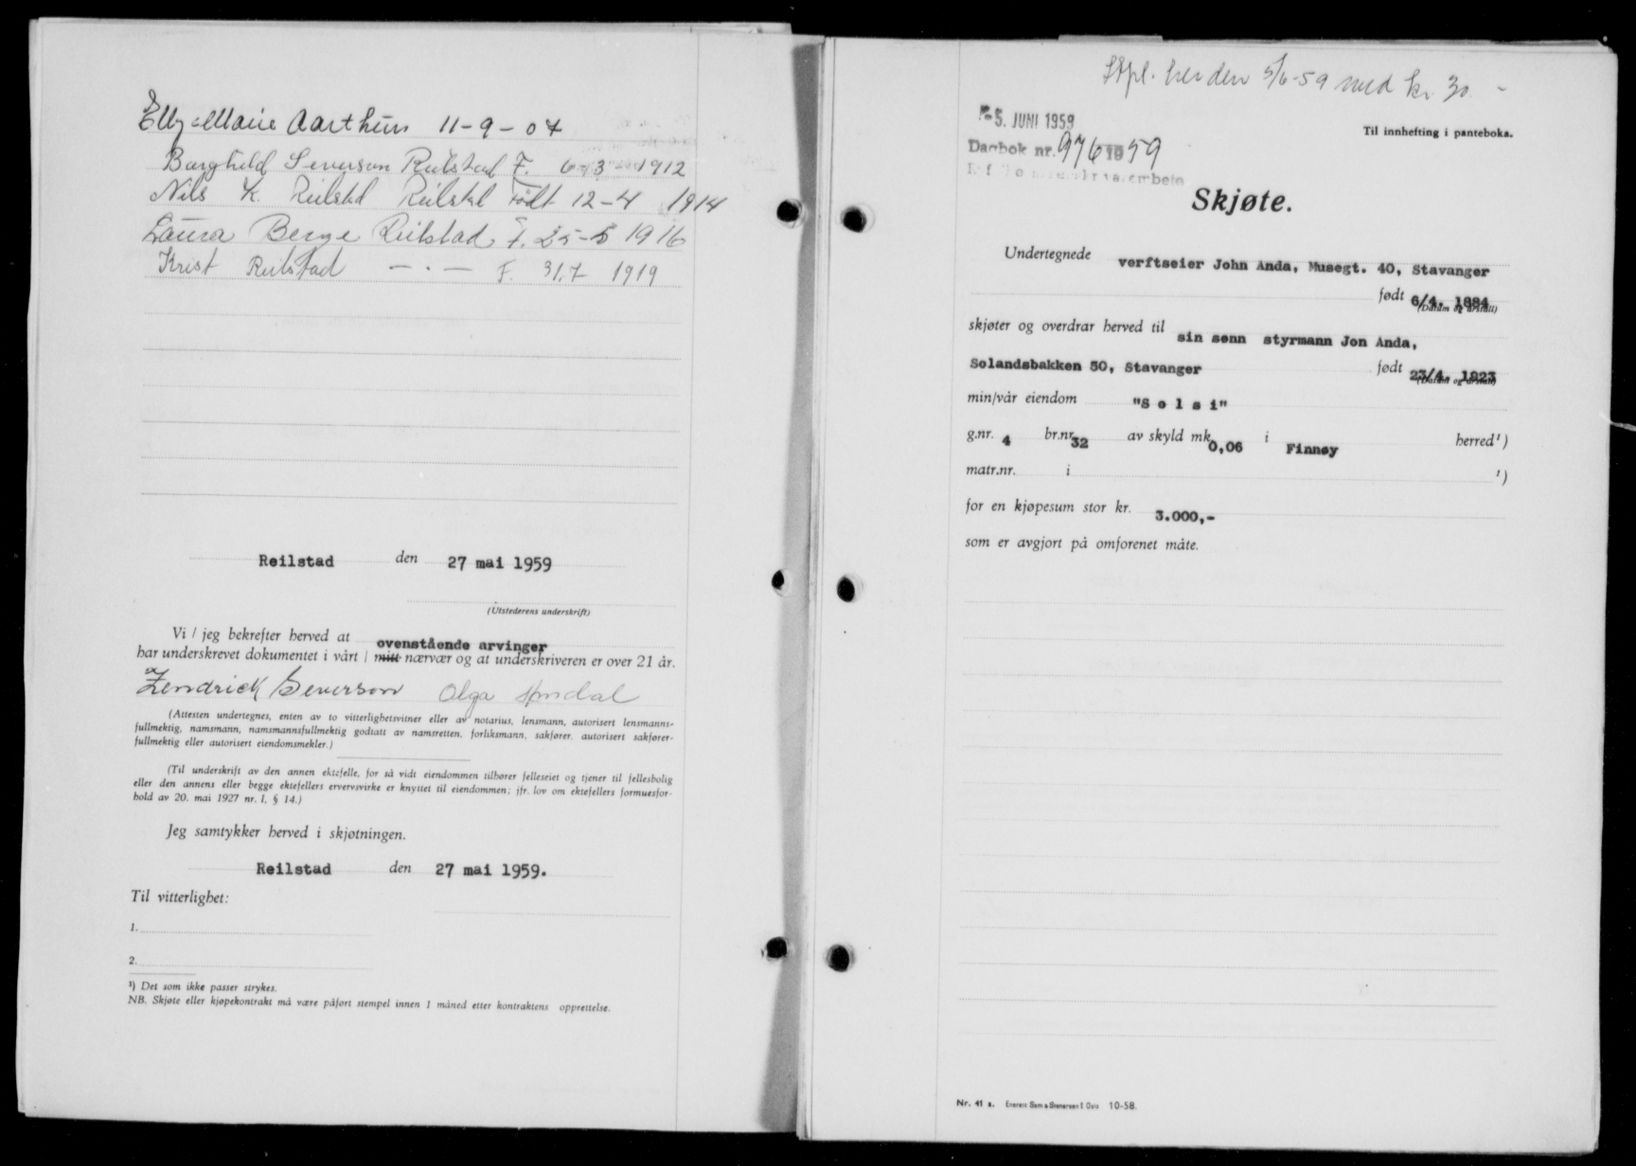 Elly-Marie Aarthun 11-9-07
Borghild Severson Reilstad F. 6-3-1912
Nils K. Reilstad Reilstad Født 12-4 1914
Laura Berge Reilstad, F. 25-5 1916
Krist Reilstad — . — F. 31.7 1919
Reilstad den 27 mai 1959
(Utstederens underskrift)
Vi / jeg bekrefter herved at ovenstående arvinger
har underskrevet dokumentet i vårt / mitt nærvær og at underskriveren er over 21 år.
Zendrick Severson Olga
(Attesten undertegnes, enten av to vitterlighetsvitner eller av notarius, lensmann, autorisert lensmanns-
fullmektig, namsmann, namsmannsfullmektig godtatt av namsretten, forliksmann, sakfører, autorisert sakfører-
fullmektig eller autorisert eiendomsmekler.)
(Til underskrift av den annen ektefelle, for så vidt eiendommen tilhører felleseiet og tjener til fellesbolig
eller den annens eller begge ektefellers ervervsvirke er knyttet til eiendommen; jfr. lov om ektefellers formuesfor-
hold av 20. mai 1927 nr. 1, § 14.)
Jeg samtykker herved i skjøtningen.
Reilstad den 27 mai 1959.
Til vitterlighet:
1.
2.
¹) Det som ikke passer strykes.
NB. Skjøte eller kjøpekontrakt må være påført stempel innen 1 måned etter kontraktens opprettelse.
Stpl. her den 5/6-59 med kr. 30 -
-5. JUNI 1959
Til innhefting i panteboka.
Dagbok nr. 976 1959
Skjøte.
Undertegnede verftseier John Anda, Musegt. 40, Stavanger
født 6/4, 1884
(Datum og årstall)
skjøter og overdrar herved til sin sønn styrmann Jon Anda,
Solandsbakken 50, Stavanger født 23/4, 1923
(Datum og årstall)
min/vår eiendom "S o l s i"
g.nr. 4 br.nr. 32 av skyld mk. 0,06 i Finnøy herred¹)
matr.nr. i ¹)
for en kjøpesum stor kr. 3.000,-
som er avgjort på omforenet måte.
Nr. 41 a. Enerett Sem & Stenersen Oslo 10-58.